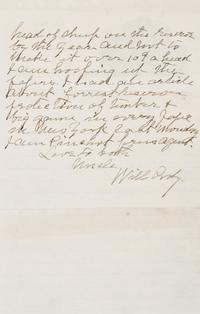 head of sheep on the reserve
by the year and not to
make it over 10¢ a head
I am working up the
papers. I had an article
about forrest reserve
protection of timber &
big game in every paper
in New York last Monday
I am Pinchot
Love to both
Uncle
Will Cody